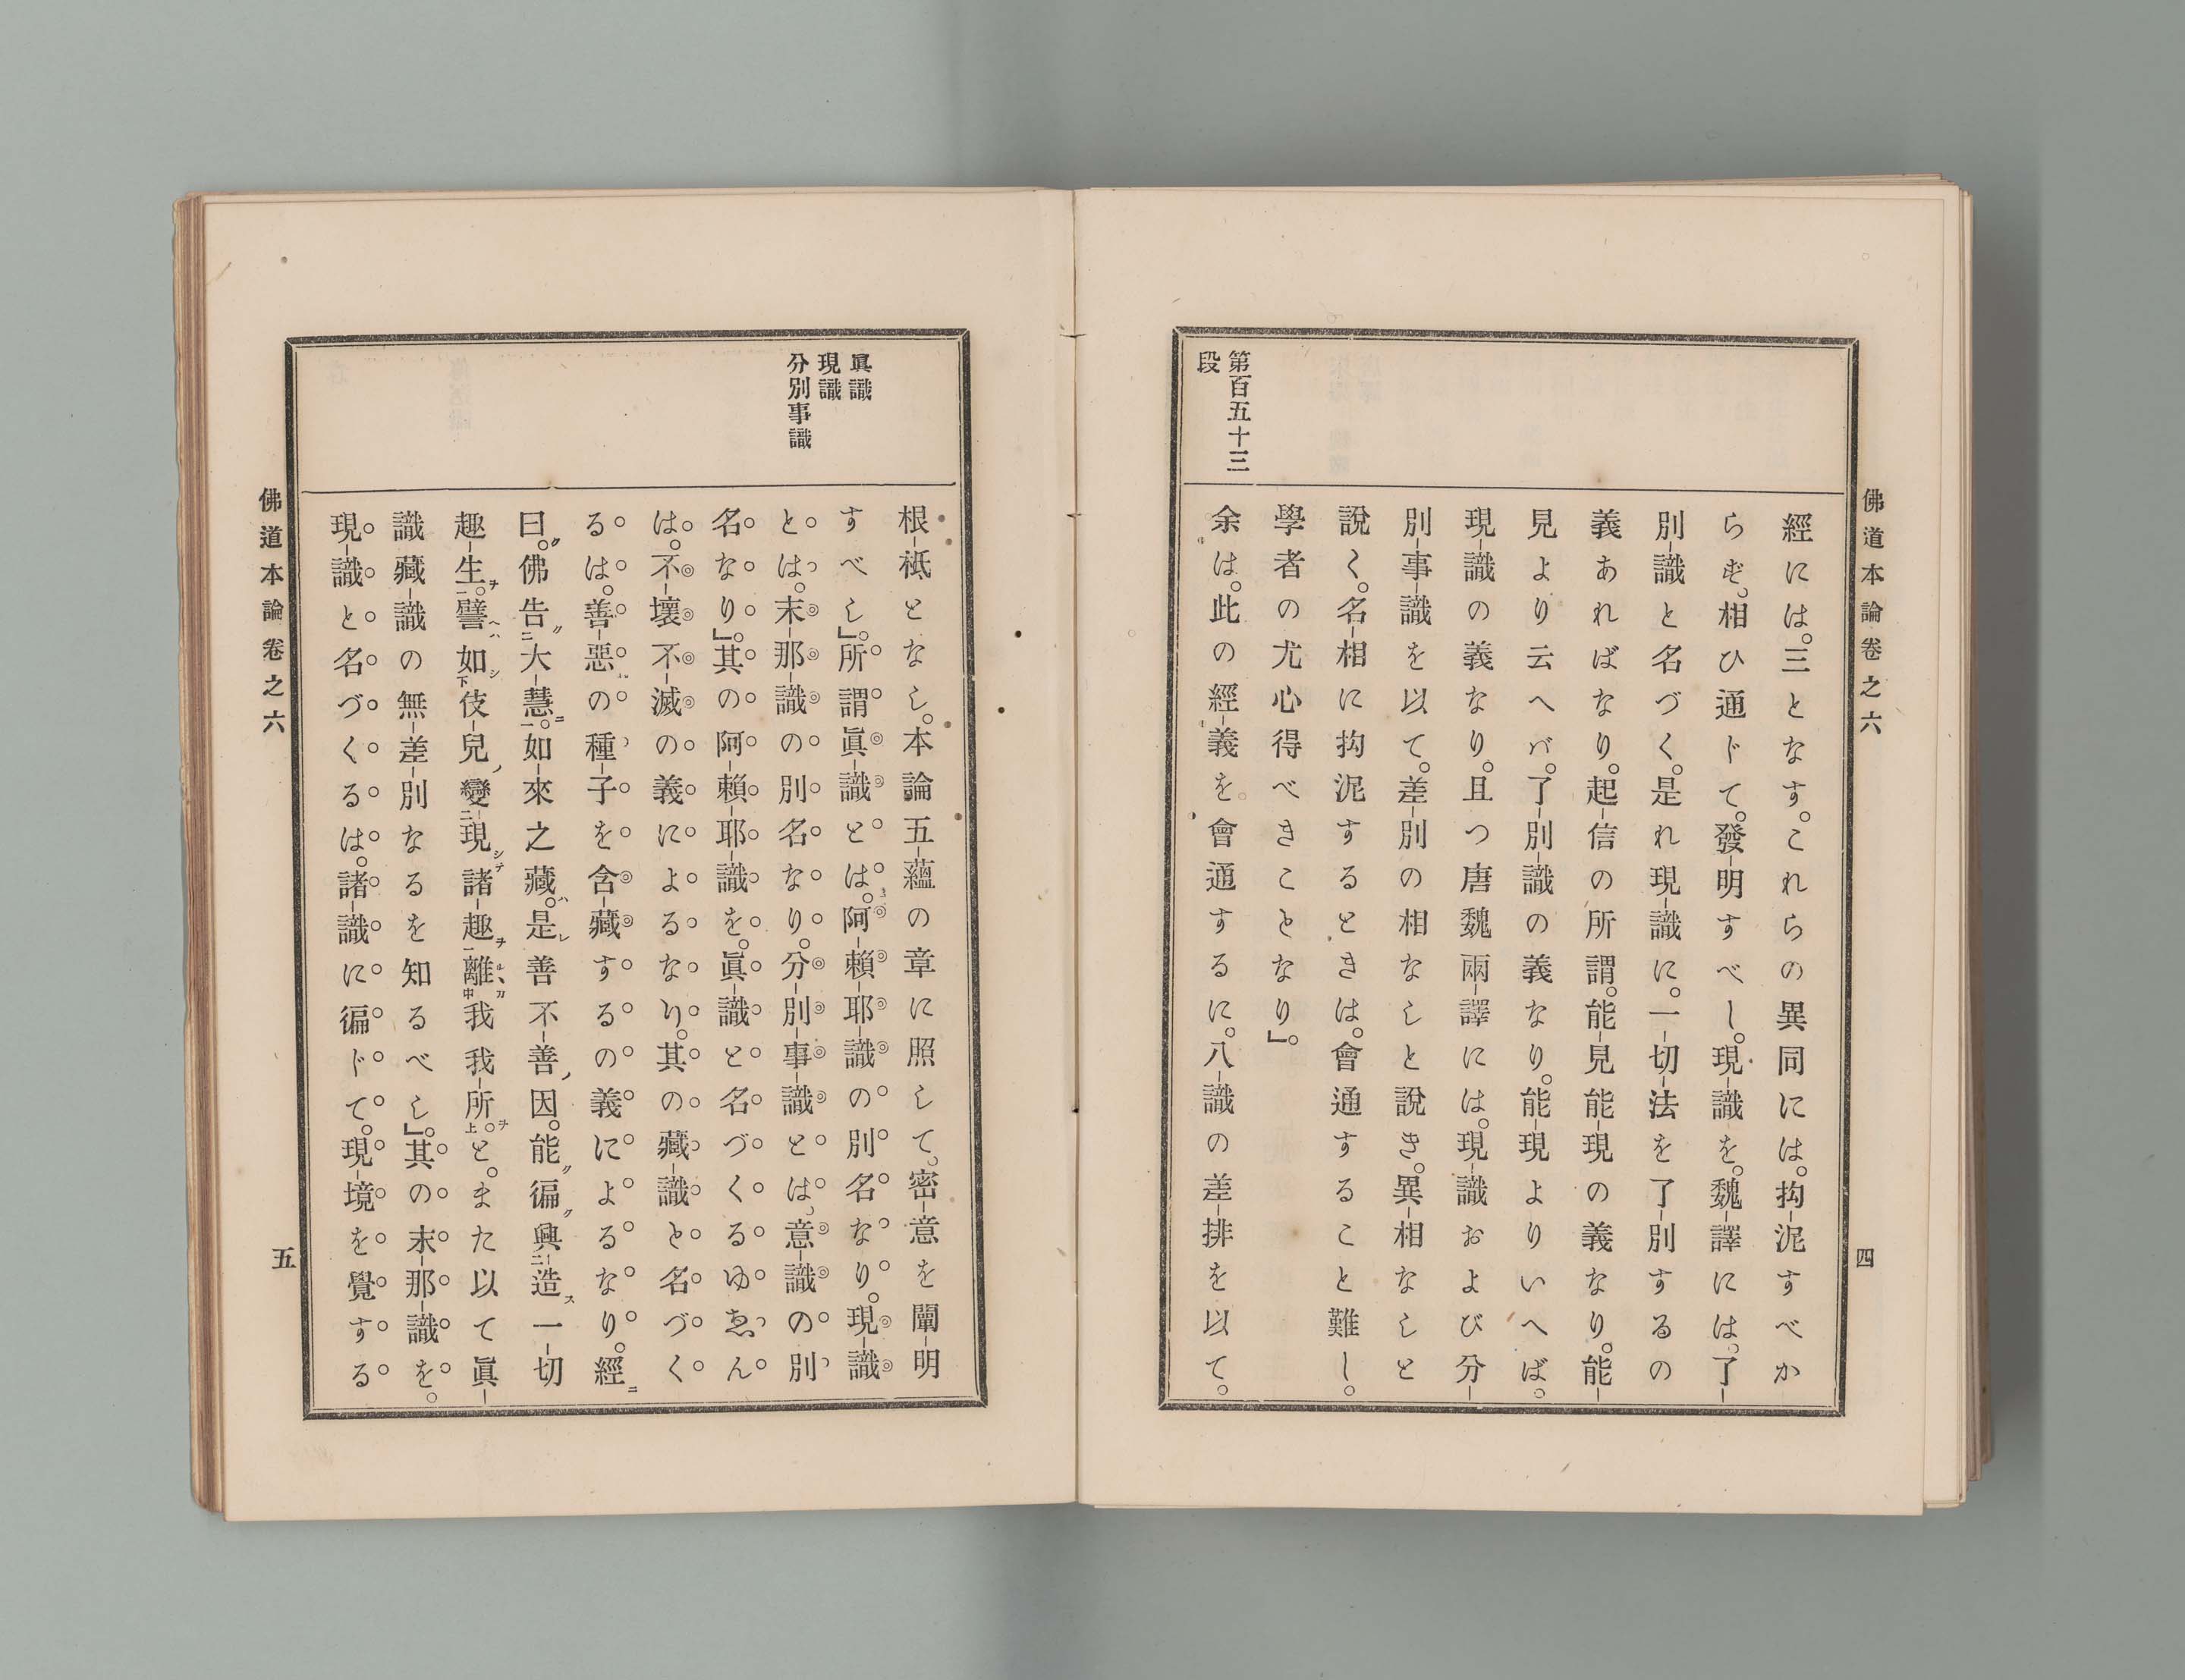 佛道本論卷之六
四
第百五十三
段
經には。三となす。これらの異同には。拘-泥すべか
らず。相ひ通ドて。發-明すべし。現-識を。魏-譯には。了-
別-識と名づく。是れ現-識に。一-切-法を了-別するの
義あればなり。起-信の所謂。能-見能-現の義なり。能-
見より云へバ。了-別-識の義なり。能-現よりいへば。
現-識の義なり。且つ唐魏兩-譯には。現-識および分-
別-事-識を以て。差-別の相なしと說き。異-相なしと
說く。名-相に拘泥するときは。會通すること難し。
學者の尤心得べきことなり」。
余は。此の經-義を會通するに。八-識の差-排を以て。
眞識
現識
分別事識
根-柢となし。本論五-蘊の章に照して。密-意を闡-明
すべし」。所謂眞-識とは。阿-賴-耶-識の別名なり。現-識
とは。末-那-識の別名なり。分-別-事-識とは。意-識の別
名なり」。其の阿-賴-耶-識を。眞-識と名づくるゆゑん
は。不-壞不-滅の義によるなり。其の藏-識と名づく
るは。善-惡の種-子を含-藏するの義によるなり。經ニ
曰ク。佛告ク二大-慧ニ一。如-來之藏ハ。是レ善不-善ノ因。能ク徧ク興二-造ス一-切
趣-生ヲ一。譬ヘハ如シ下伎-兒ノ變二-現シテ諸-趣ヲ一離ルヽカ中我我-所ヲ上。と。また以て眞-
識藏-識の無-差-別なるを知るべし」。其の末-那-識を。
現-識と名づくるは。諸-識に徧ドて。現-境を覺する
佛道本論卷之六
五